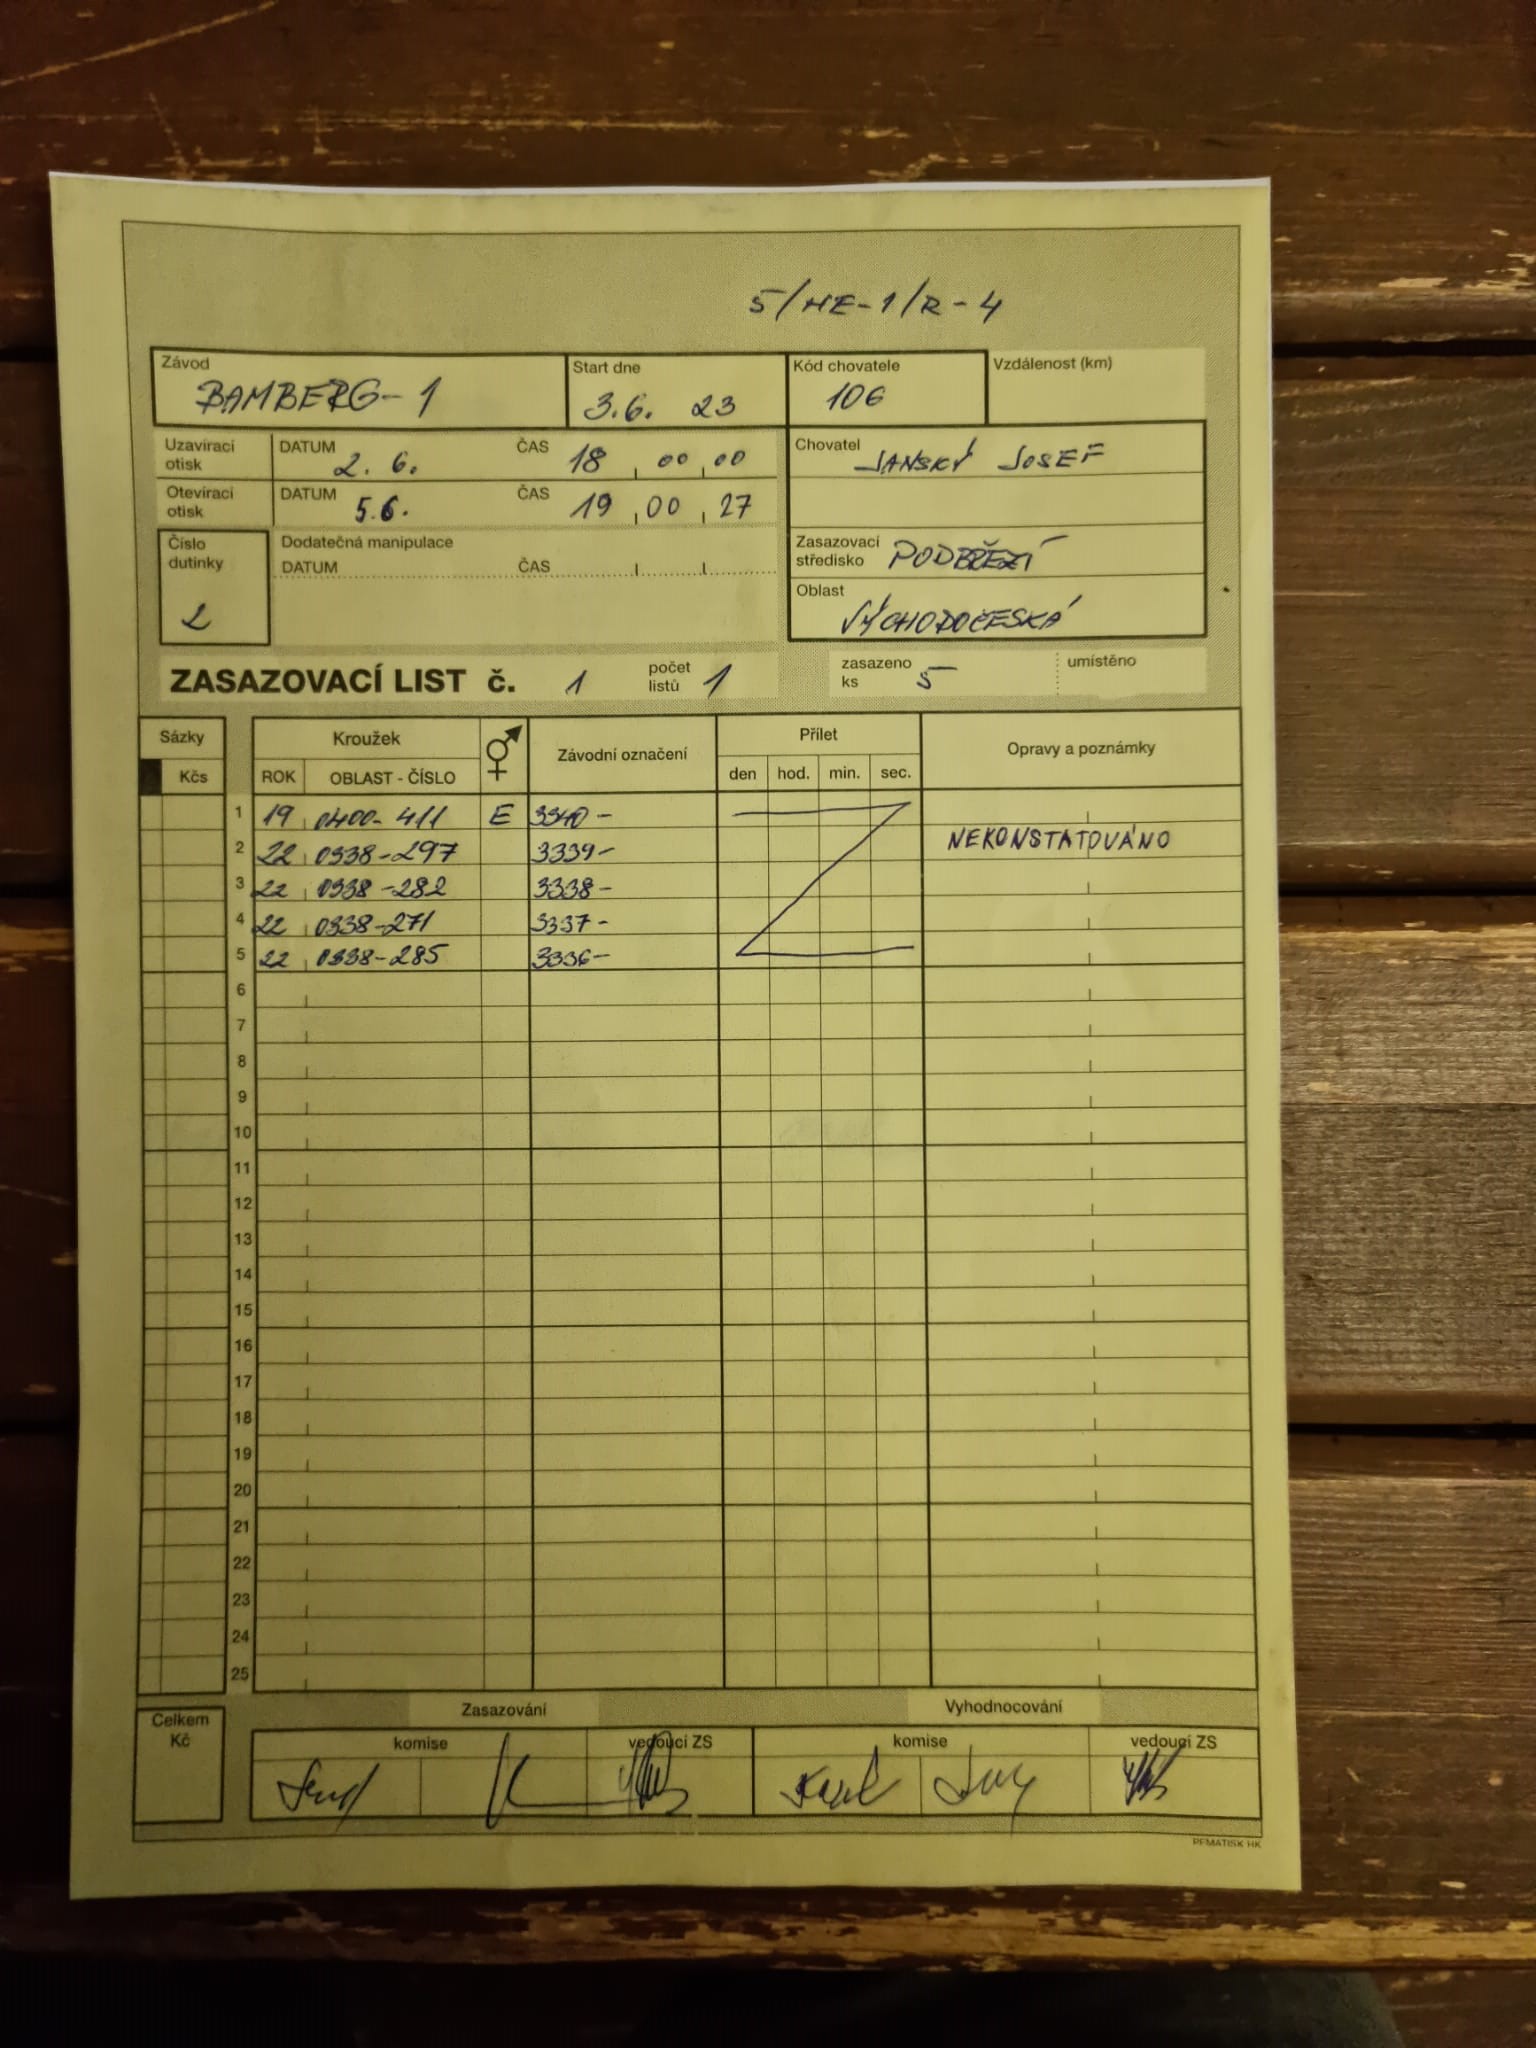 5/HE-1/R-4
Závod
BAMBERG-1
Start dne
3.6. 23
Kód chovatele
106
Vzdálenost (km)
Uzavírací otisk DATUM 2. 6. ČAS 18 00 00
Otevírací otisk DATUM 5.6. ČAS 19 00 27
Chovatel JANSKÝ JOSEF
Číslo dutinky
2
Dodatečná manipulace
DATUM ČAS
Zasazovací středisko PODBŘEZÍ
Oblast
VÝCHODOČESKÁ
ZASAZOVACÍ LIST č. 1 počet listů 1 zasazeno ks 5 umístěno
Sázky Kroužek Závodní označení Přílet Opravy a poznámky
Kčs ROK OBLAST - ČÍSLO den hod. min. sec.
1 19 0400-411 E 3340-
2 22 0338-297 3339- NEKONSTATOVÁNO
3 22 0338-282 3338-
4 22 0338-271 3337-
5 22 0338-285 3336-
6
7
8
9
10
11
12
13
14
15
16
17
18
19
20
21
22
23
24
25
Celkem Kč
Zasazování Vyhodnocování
komise vedoucí ZS komise vedoucí ZS
PEMATISK HK